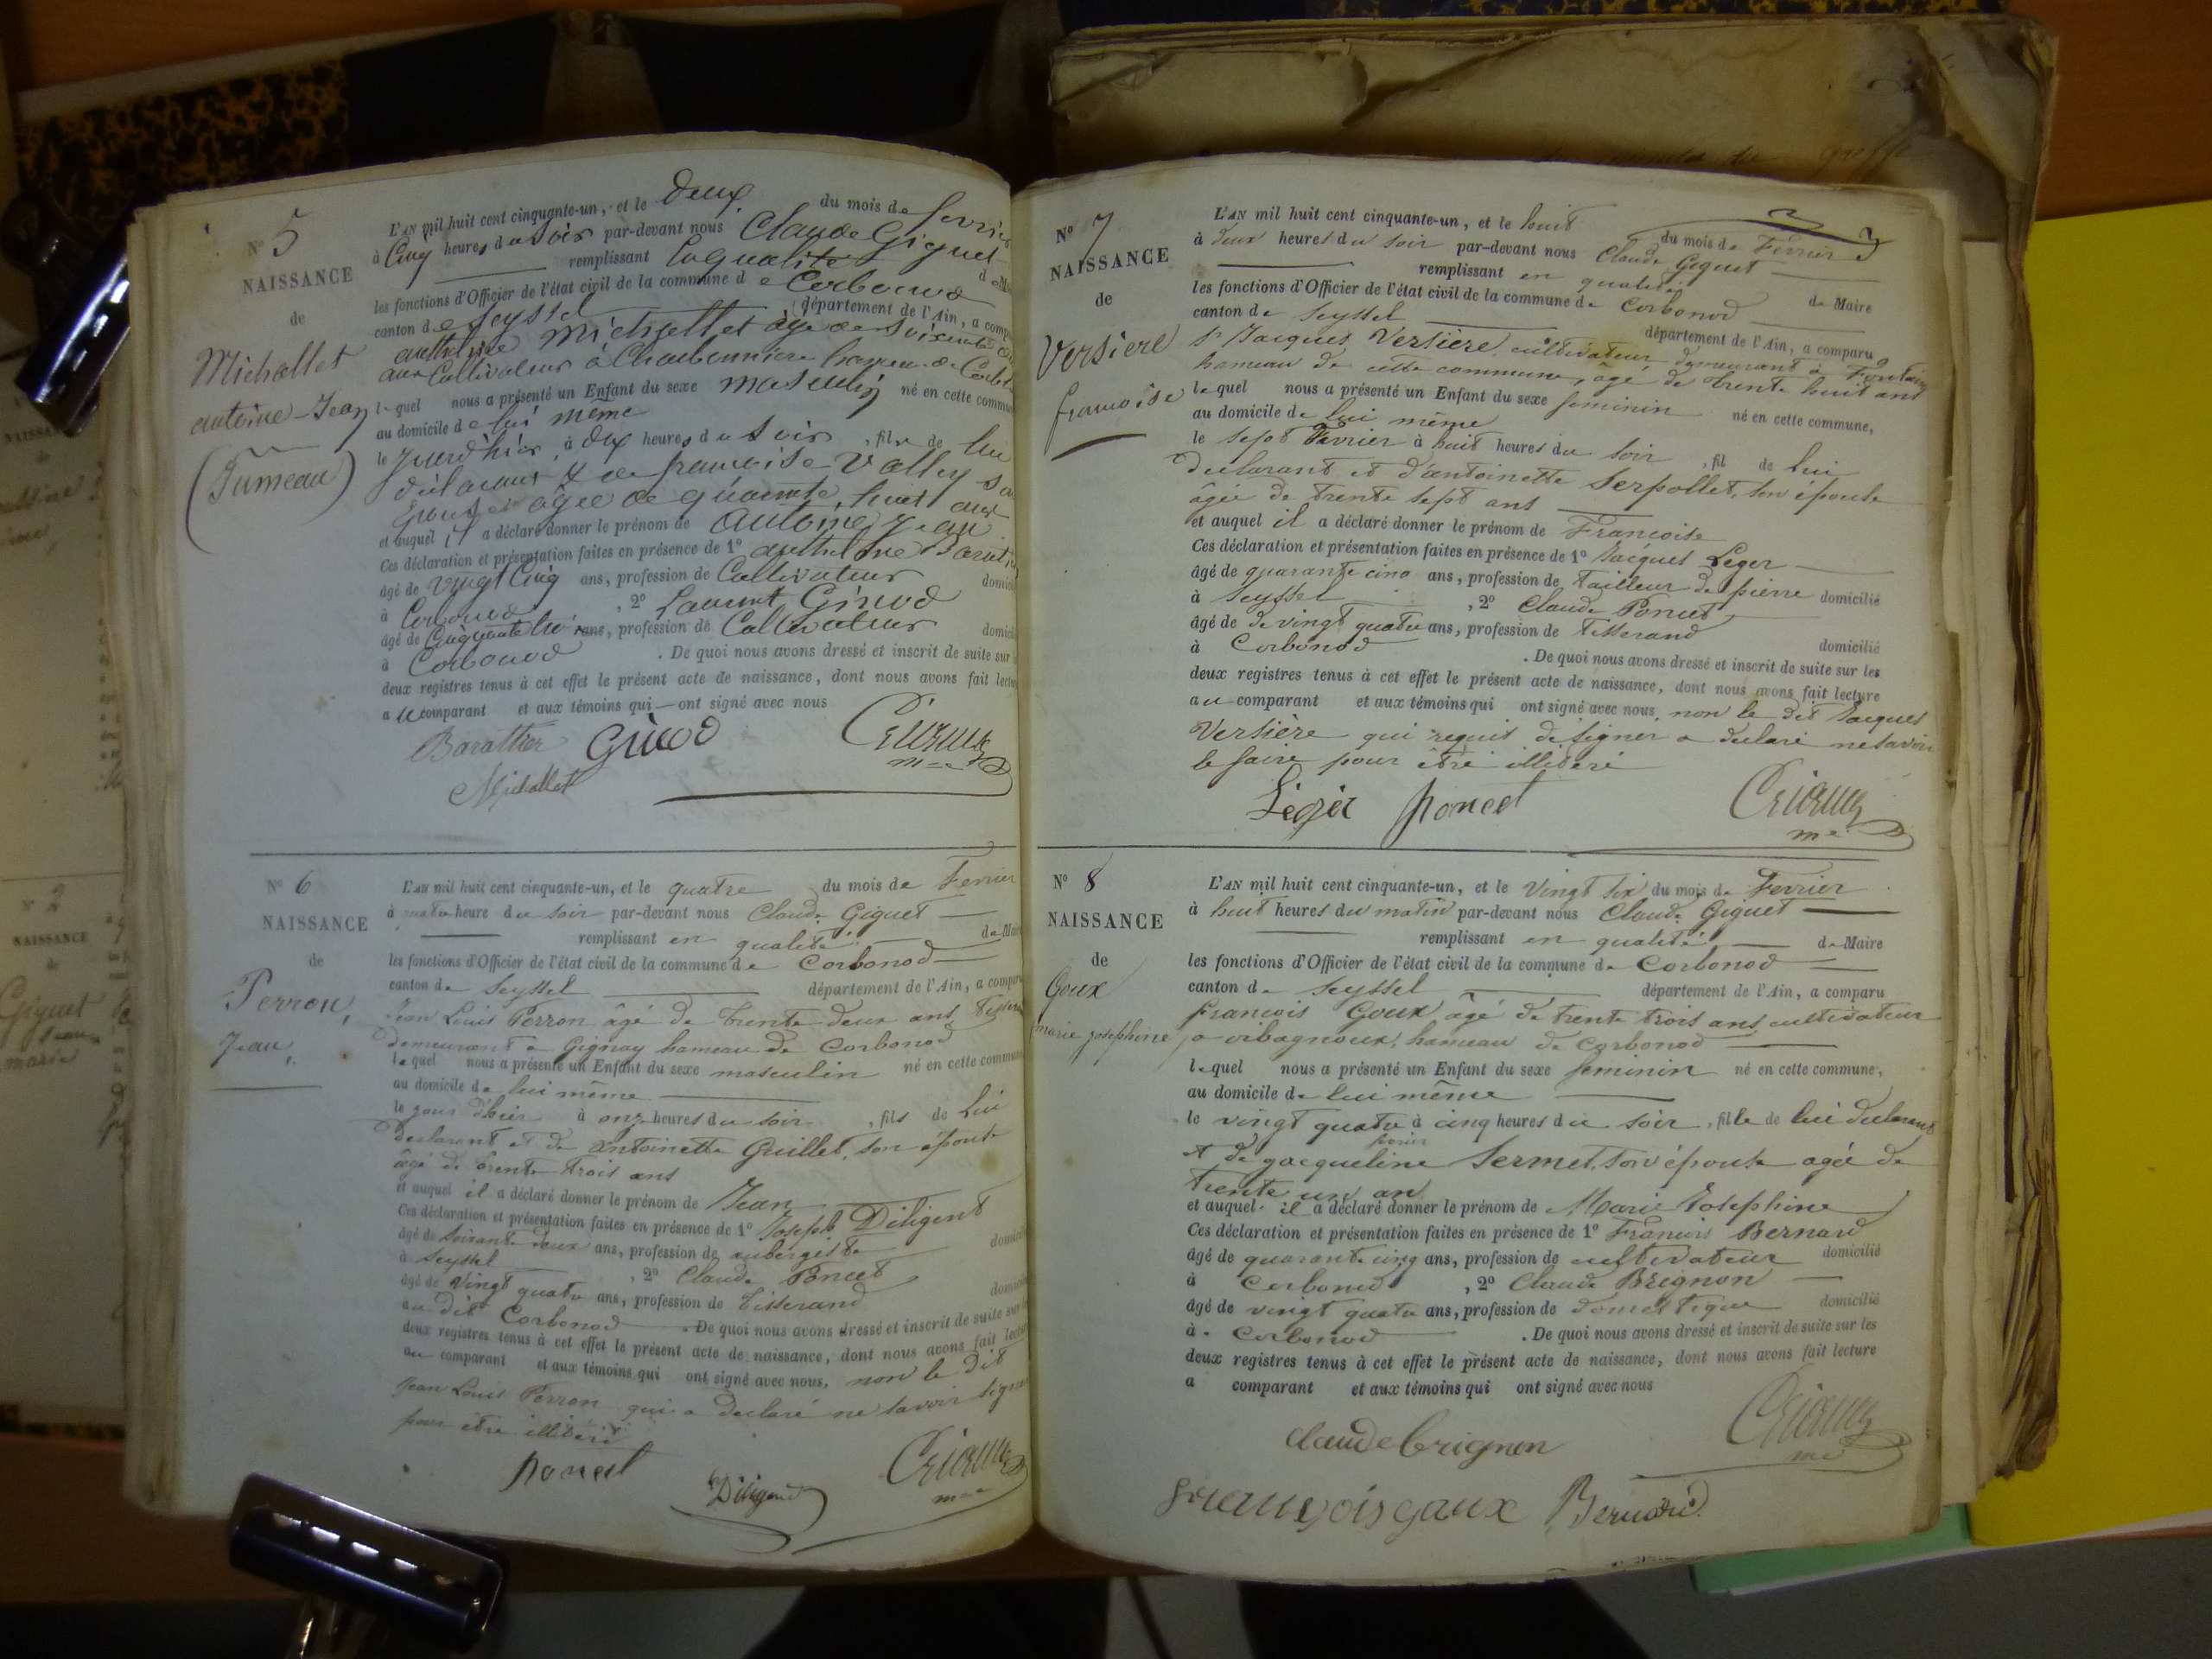 N° 5
NAISSANCE
de
Michallet
antoine Jean
(Jumeau)
L'AN mil huit cent cinquante-un, et le deux du mois de fevrier
à Cinq heures du soir par-devant nous Claude Giguet
remplissant la qualité de
les fonctions d'Officier de l'état civil de la commune de Corbonod
canton de Seyssel département de l'Ain, a comparu
anthelme Michallet âgé de soixante
ans Cultivateur à Charbonniere hameau de
lequel nous a présenté un Enfant du sexe masculin né en cette commune
au domicile de lui même
le jourd'hier, à dix heures du soir, fils de lui
déclarant & de francoise Vallet sa
épouse agée de quarante huit ans
et auquel il a déclaré donner le prénom de antoine Jean
Ces déclaration et présentation faites en présence de 1° anthelme
âgé de vingt Cinq ans, profession de Cultivateur
à Corbonod, 2° Laurent Girod
âgé de Cinquante ans, profession de Cultivateur
à Corbonod. De quoi nous avons dressé et inscrit de suite sur
deux registres tenus à cet effet le présent acte de naissance, dont nous avons fait lecture
au comparant et aux témoins qui ont signé avec nous
Barathier Girod
Michallet
N° 6
NAISSANCE
de
Perron,
Jean,
L'AN mil huit cent cinquante-un, et le quatre du mois de Fevrier
à heure du soir par-devant nous Claude Giguet
remplissant en qualité de Maire
les fonctions d'Officier de l'état civil de la commune de Corbonod
canton de Seyssel département de l'Ain, a comparu
Jean Louis Perron âgé de trente deux ans
demeurant a Gignay hameau de Corbonod
lequel nous a présenté un Enfant du sexe masculin né en cette commune
au domicile de lui même
le jour d'hier à onze heures du soir, fils de Lui
declarant et de antoinette Guillet, son épouse
âgé de trente trois ans
et auquel il a déclaré donner le prénom de Jean
Ces déclaration et présentation faites en présence de 1° Joseph Diligent
âgé de soixante deux ans, profession de aubergiste
à Seyssel, 2° Claude Poncet
âgé de vingt quatre ans, profession de tisserand
au dit Corbonod. De quoi nous avons dressé et inscrit de suite sur
deux registres tenus à cet effet le présent acte de naissance, dont nous avons fait lecture
au comparant et aux témoins qui ont signé avec nous, non le dit
Jean Louis Perron qui a declaré ne savoir signer
pour être illiteré
poncet Diligent
N° 7
NAISSANCE
de
Versiere
francoise
L'AN mil huit cent cinquante-un, et le huit du mois de Fevrier
à deux heures du soir par-devant nous Claude Giguet
remplissant en qualité de Maire
les fonctions d'Officier de l'état civil de la commune de Corbonod
canton de Seyssel département de l'Ain, a comparu
Sr Jacques Versiere, cultivateur, demeurant à
hameau de cette commune, âgé de trente huit ans
lequel nous a présenté un Enfant du sexe feminin né en cette commune,
au domicile de lui même
le sept Fevrier à huit heures du soir, fil de Lui
declarant et d'antoinette Serpollet, son épouse
âgée de trente sept ans
et auquel il a déclaré donner le prénom de Francoise
Ces déclaration et présentation faites en présence de 1° Jacques Leger
âgé de quarante cinq ans, profession de tailleur de pierre domicilié
à Seyssel, 2° Claude Poncet
âgé de de vingt quatre ans, profession de tisserand domicilié
à Corbonod. De quoi nous avons dressé et inscrit de suite sur les
deux registres tenus à cet effet le présent acte de naissance, dont nous avons fait lecture
au comparant et aux témoins qui ont signé avec nous, non le dit Jacques
Versière qui requis de signer a declaré ne savoir
le faire pour être illiteré
Léger poncet
N° 8
NAISSANCE
de
Goux
marie josephine
L'AN mil huit cent cinquante-un, et le vingt six du mois de Fevrier
à huit heures du matin par-devant nous Claude Giguet
remplissant en qualité de Maire
les fonctions d'Officier de l'état civil de la commune de Corbonod
canton de Seyssel département de l'Ain, a comparu
Francois Goux âgé de trente trois ans cultivateur
a orbagnoux, hameau de Corbonod
lequel nous a présenté un Enfant du sexe feminin né en cette commune,
au domicile de lui même
le vingt quatre à cinq heures du soir, fille de lui declarant
et de jacqueline Sermet, son épouse agée de
trente un an
et auquel il a déclaré donner le prénom de Marie Josephine
Ces déclaration et présentation faites en présence de 1° Francois Bernard
âgé de quarante cinq ans, profession de cultivateur domicilié
à Corbonod, 2° Claude Brignon
âgé de vingt quatre ans, profession de domestique domicilié
à Corbonod. De quoi nous avons dressé et inscrit de suite sur les
deux registres tenus à cet effet le présent acte de naissance, dont nous avons fait lecture
a comparant et aux témoins qui ont signé avec nous
claude brignon
françois goux Bernard
N° 2
NAISSANCE
de
Giguet
marie